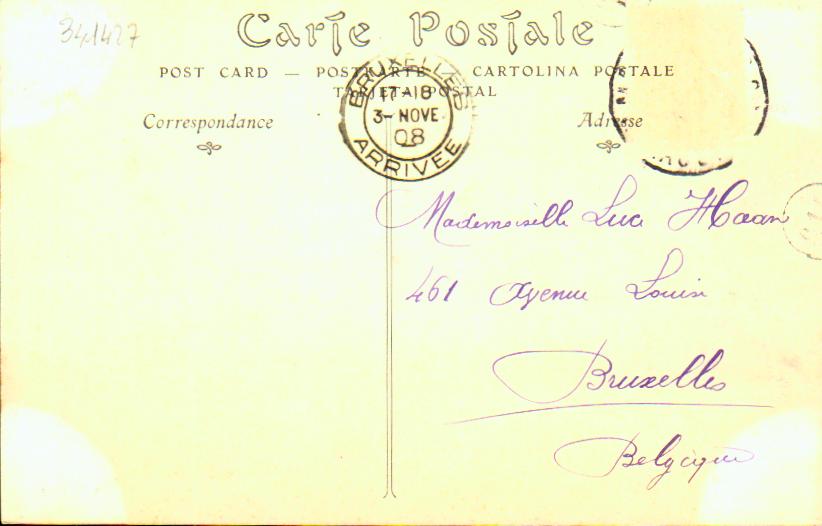 341427
Carte Postale
POST CARD — POSTKARTE — CARTOLINA POSTALE
TARJETA POSTAL
Correspondance
Adresse
BRUXELLES
17-18
3- NOVE
08
ARRIVÉE
Mademoiselle Luce Haan
461 Avenue Louise
Bruxelles
Belgique